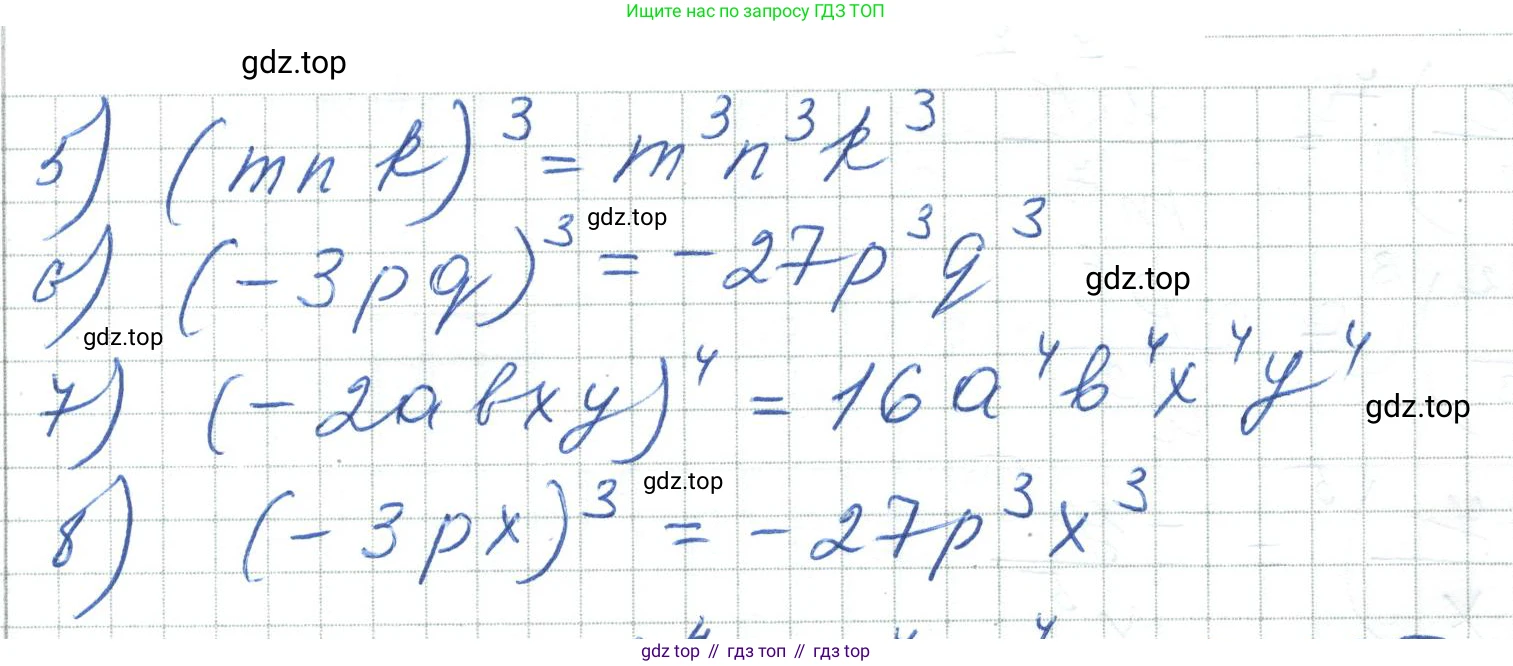 Ищите нас по запросу ГДЗ ТОП
gdz.top
5) (mnk)³ = m³n³k³
gdz.top
6) (-3pq)³ = -27p³q³
gdz.top
gdz.top
7) (-2abxy)⁴ = 16a⁴b⁴x⁴y⁴
gdz.top
gdz.top
8) (-3px)³ = -27p³x³
gdz.top // гдз топ // гдз.top